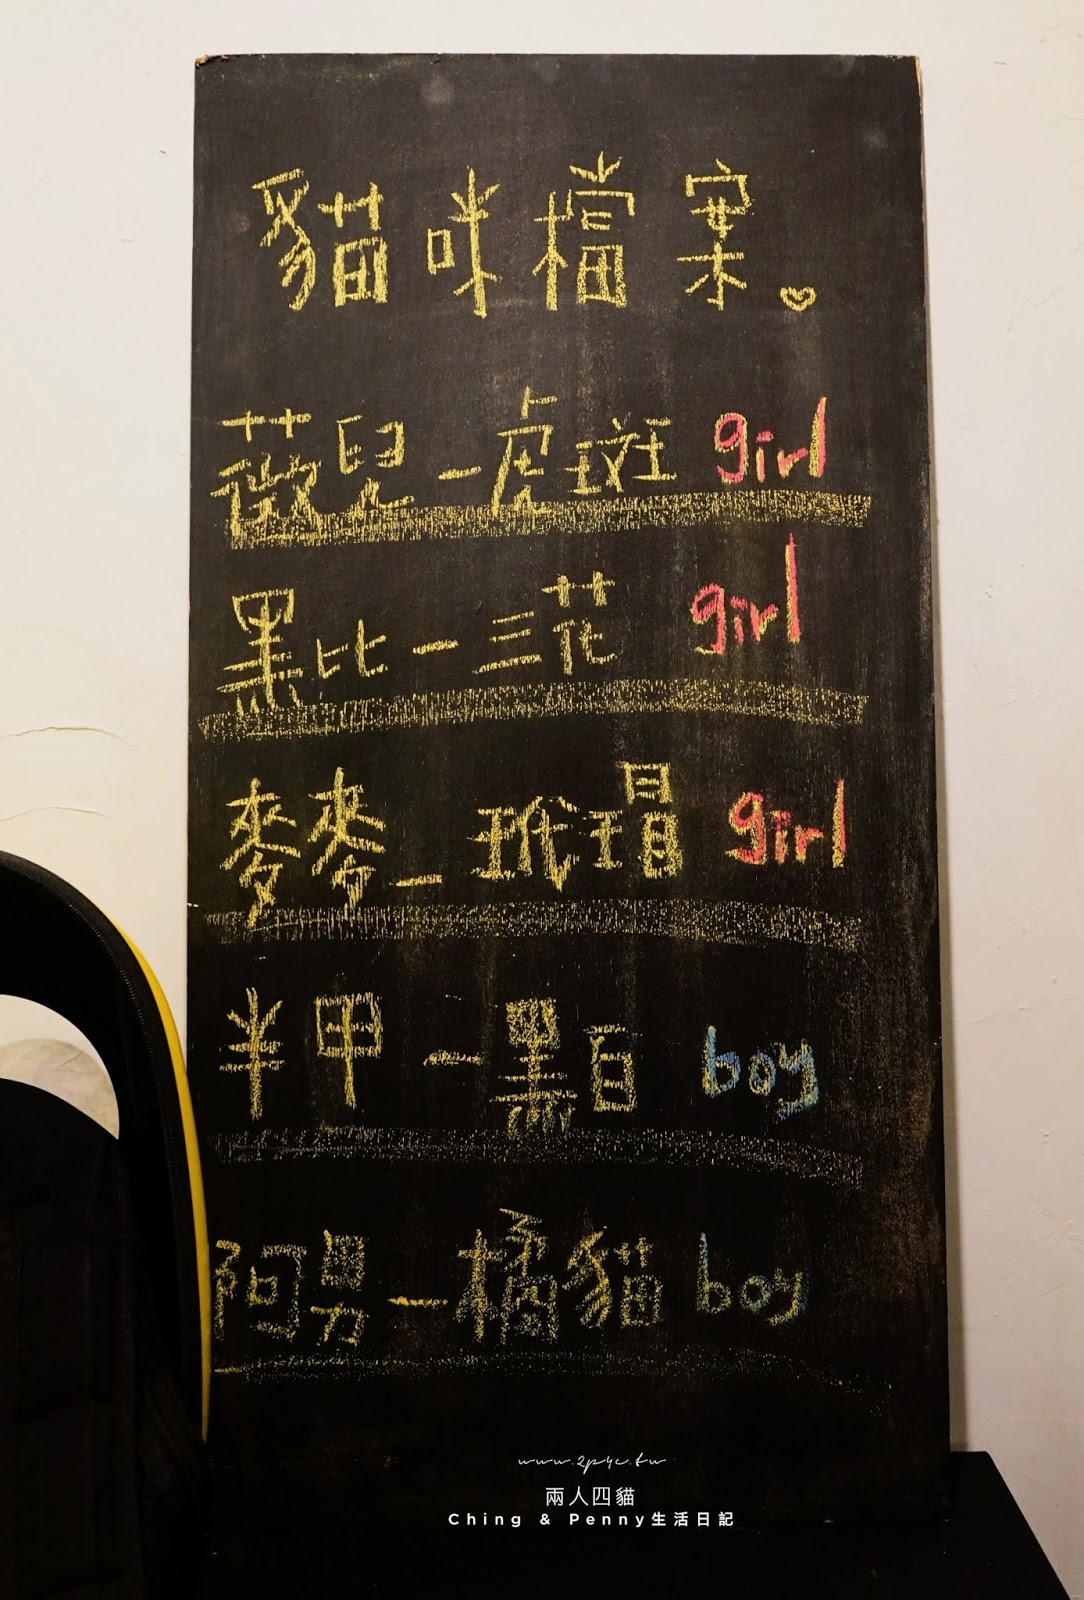 貓咪檔案
薇兒-虎斑 girl
黑比-三花 girl
麥麥-玳瑁 girl
半甲-黑白 boy
阿男-橘貓 boy
www.2p4c.tw
兩人四貓
Ching & Penny生活日記